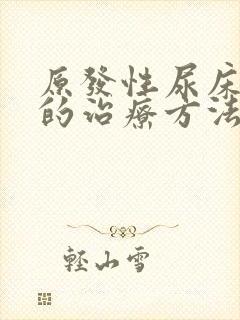 原發性尿床
的治療方法
輕山雪